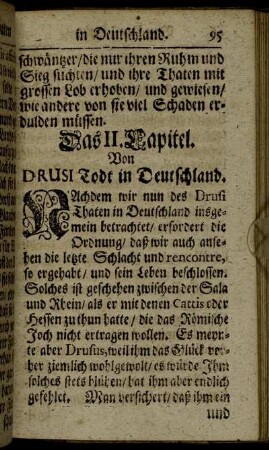 in Deutschland. 95
schwäntzer/die nur ihren Ruhm und
Sieg suchten/ und ihre Thaten mit
grossen Lob erhoben/ und gewiesen/
wie andere von sie viel Schaden er-
dulden müssen.
Das II. Capitel.
Von
DRUSI Todt in Deutschland.
NAchdem wir nun des Drusi
Thaten in Deutschland insge-
mein betrachtet/ erfordert die
Ordnung/ daß wir auch anse-
hen die letzte Schlacht und rencontre,
so er gehabt/ und sein Leben beschlossen.
Solches ist geschehen zwischen der Sala
und Rhein/ als er mit denen Cattis oder
Hessen zu thun hatte/ die das Römische
Joch nicht ertragen wollen. Es meyn-
te aber Drusus, weil ihm das Glück vor-
her ziemlich wohlgewolt/ es würde Ihm
solches stets blühen/ hat ihm aber endlich
gefehlet. Man versichert/ daß ihm ein
und